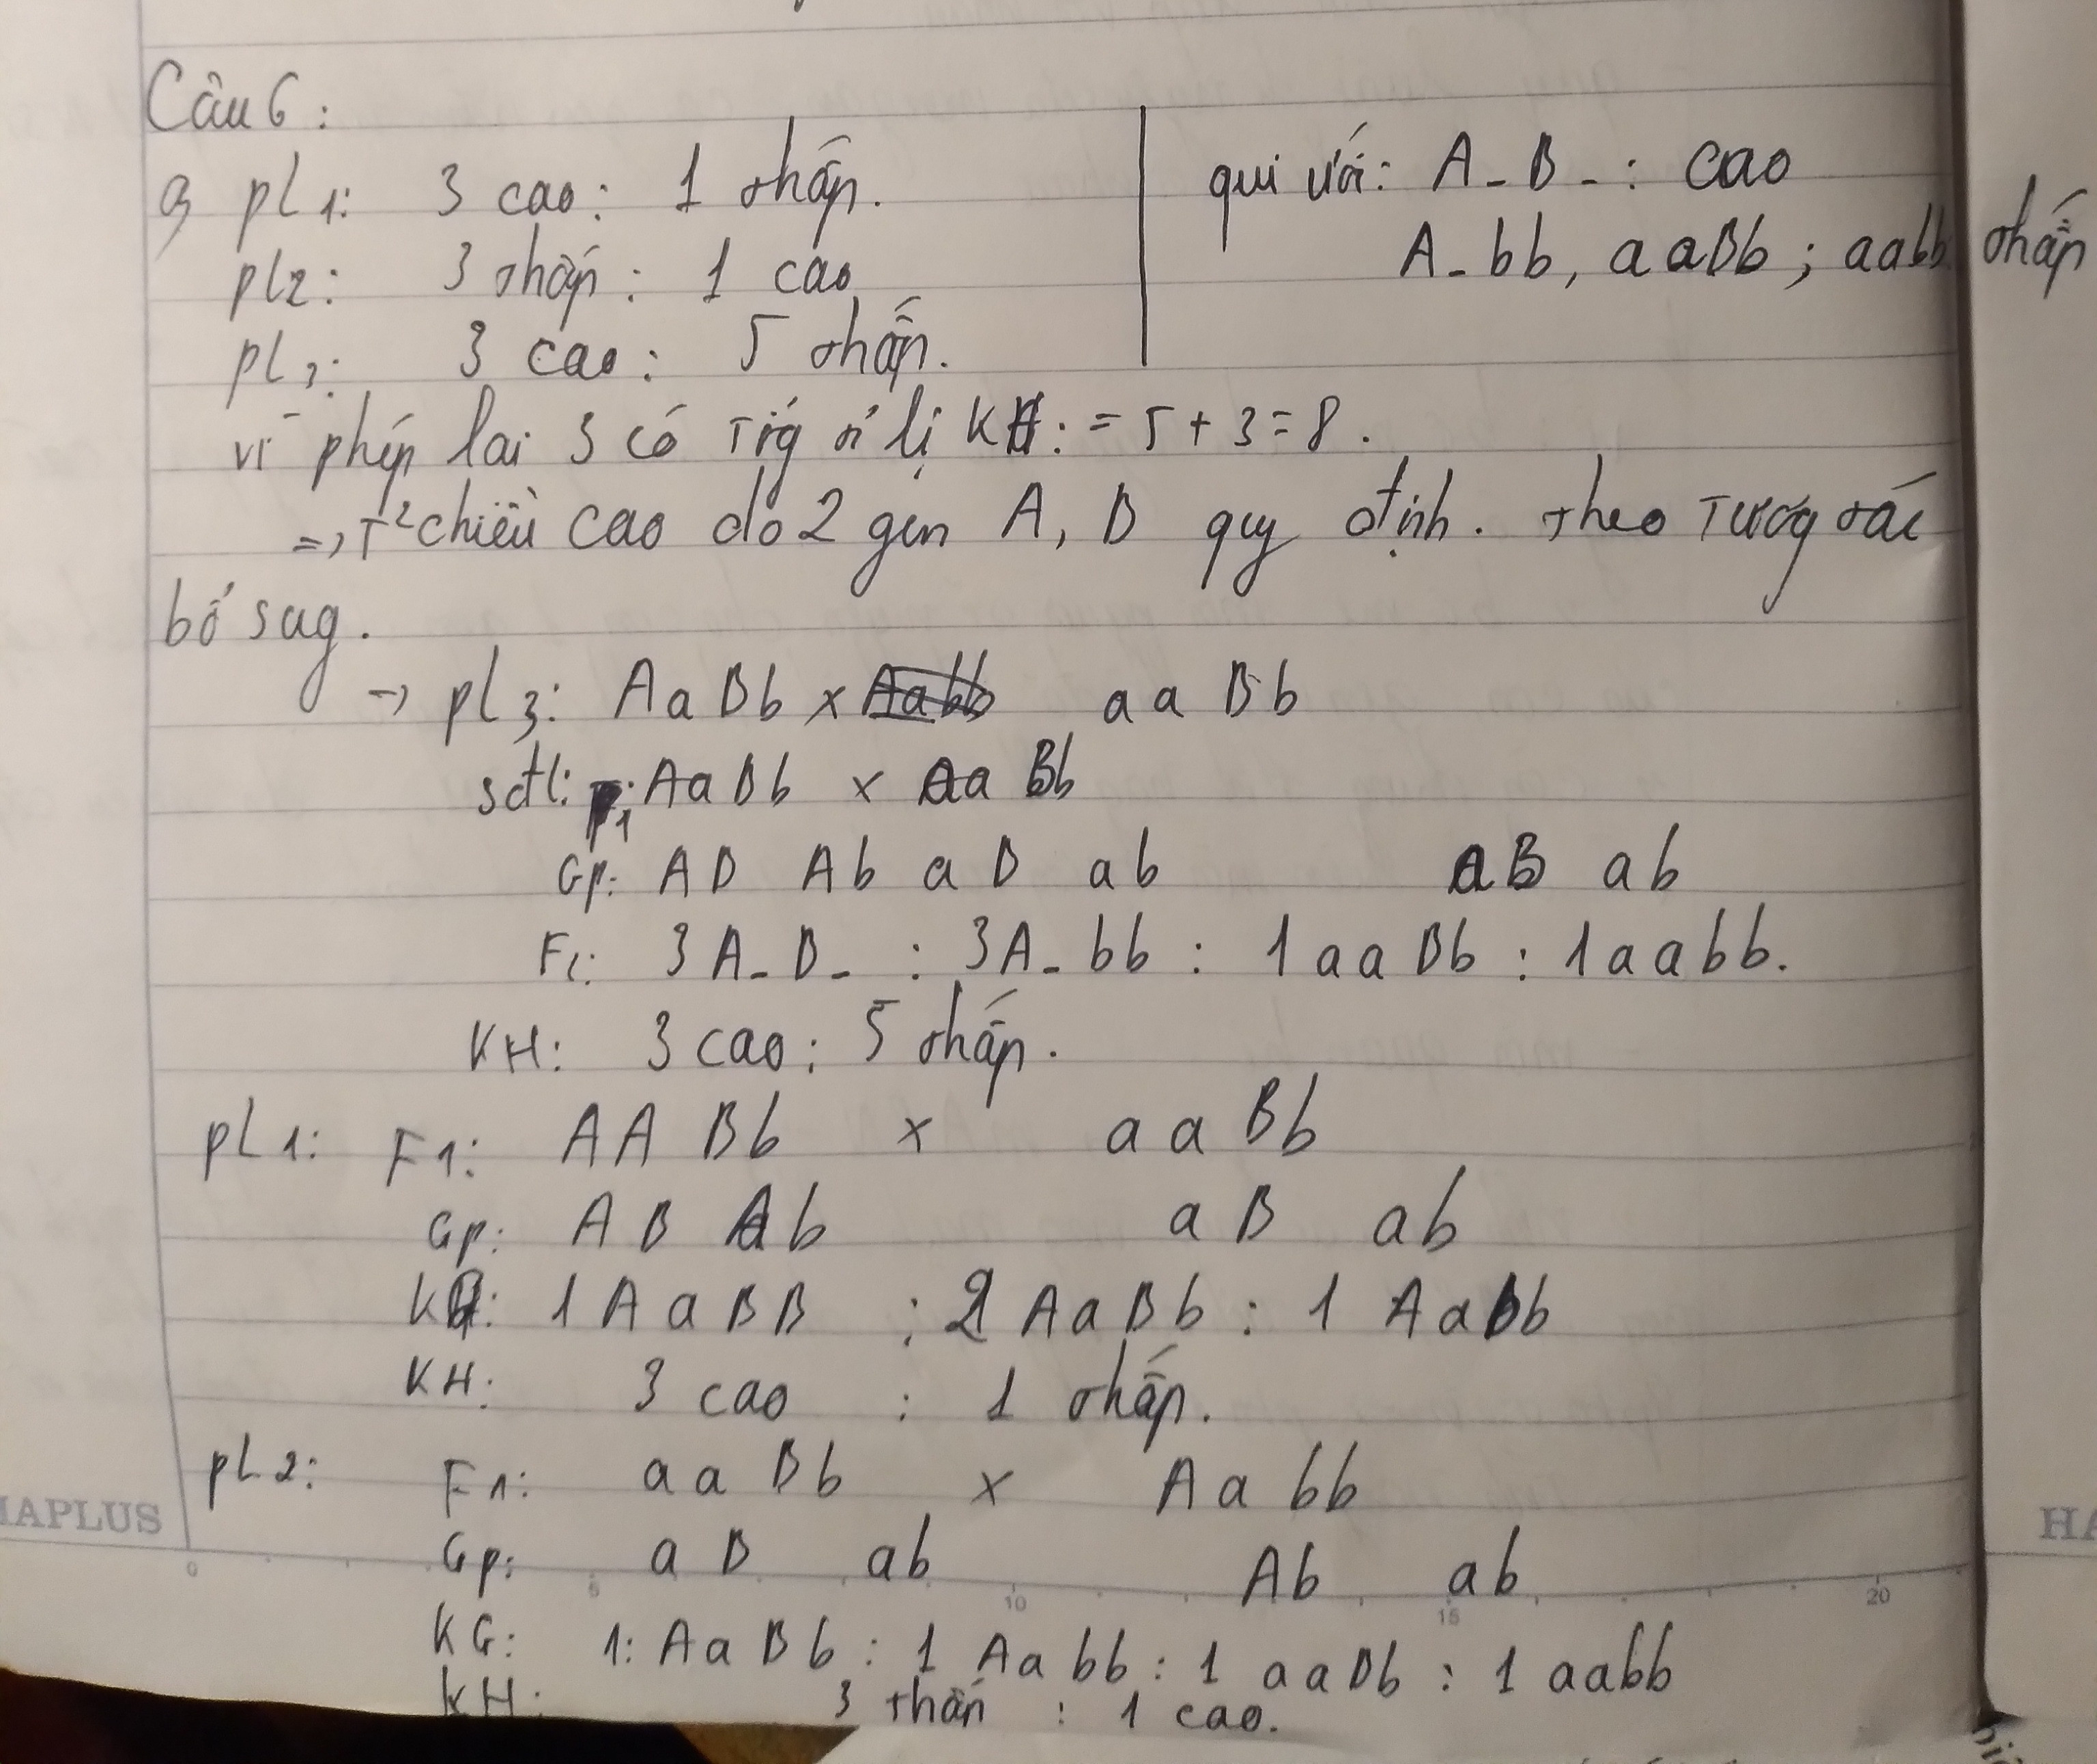 Câu 6:
a, pL1: 3 cao: 1 thấp.
pL2: 3 thấp: 1 cao
pL3: 3 cao: 5 thấp.
qui ước: A-B-: cao
A-bb, aaBb; aabb thấp
vì phép lai 3 có Tổg tỉ lị KH: = 5 + 3 = 8.
=> T² chiều cao do 2 gen A, B quy định. theo Tươg tác
bổ sug.
-> pL3: AaBb x aaBb
sđl: P1: AaBb x aaBb
Gp: AB Ab aB ab aB ab
F1: 3A-B- : 3A-bb : 1aaBb : 1aabb.
KH: 3 cao: 5 thấp.
pL1: F1: AABb x aaBb
Gp: AB Ab aB ab
KG: 1AaBB : 2AaBb : 1Aabb
KH: 3 cao : 1 thấp.
pL2: F1: aaBb x Aabb
Gp: aB ab Ab ab
KG: 1: AaBb : 1 Aabb : 1 aaBb : 1 aabb
KH: 3 thấp : 1 cao.
HAPLUS
HA
0 5 10 15 20